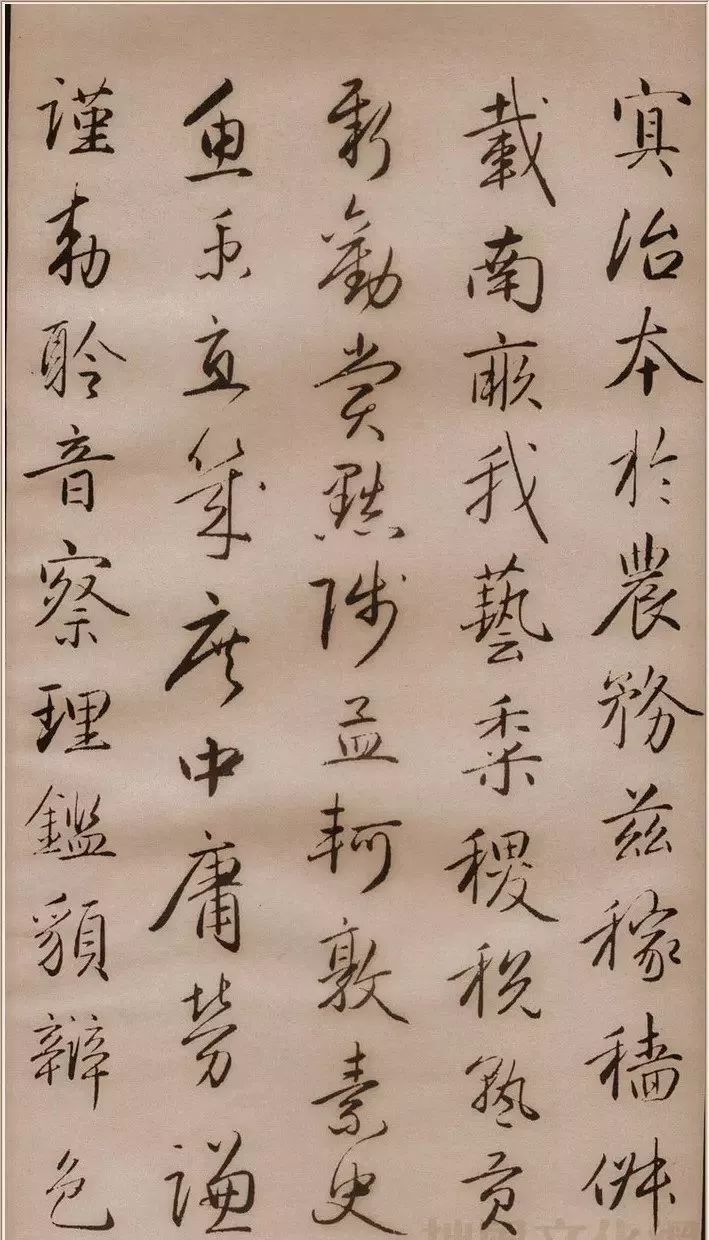 寘治本於農務茲稼穡俶
載南畝我藝黍稷稅熟貢
新勸賞黜陟孟軻敦素史
魚秉直幾庶中庸勞謙
謹勑聆音察理鑑貌辯色